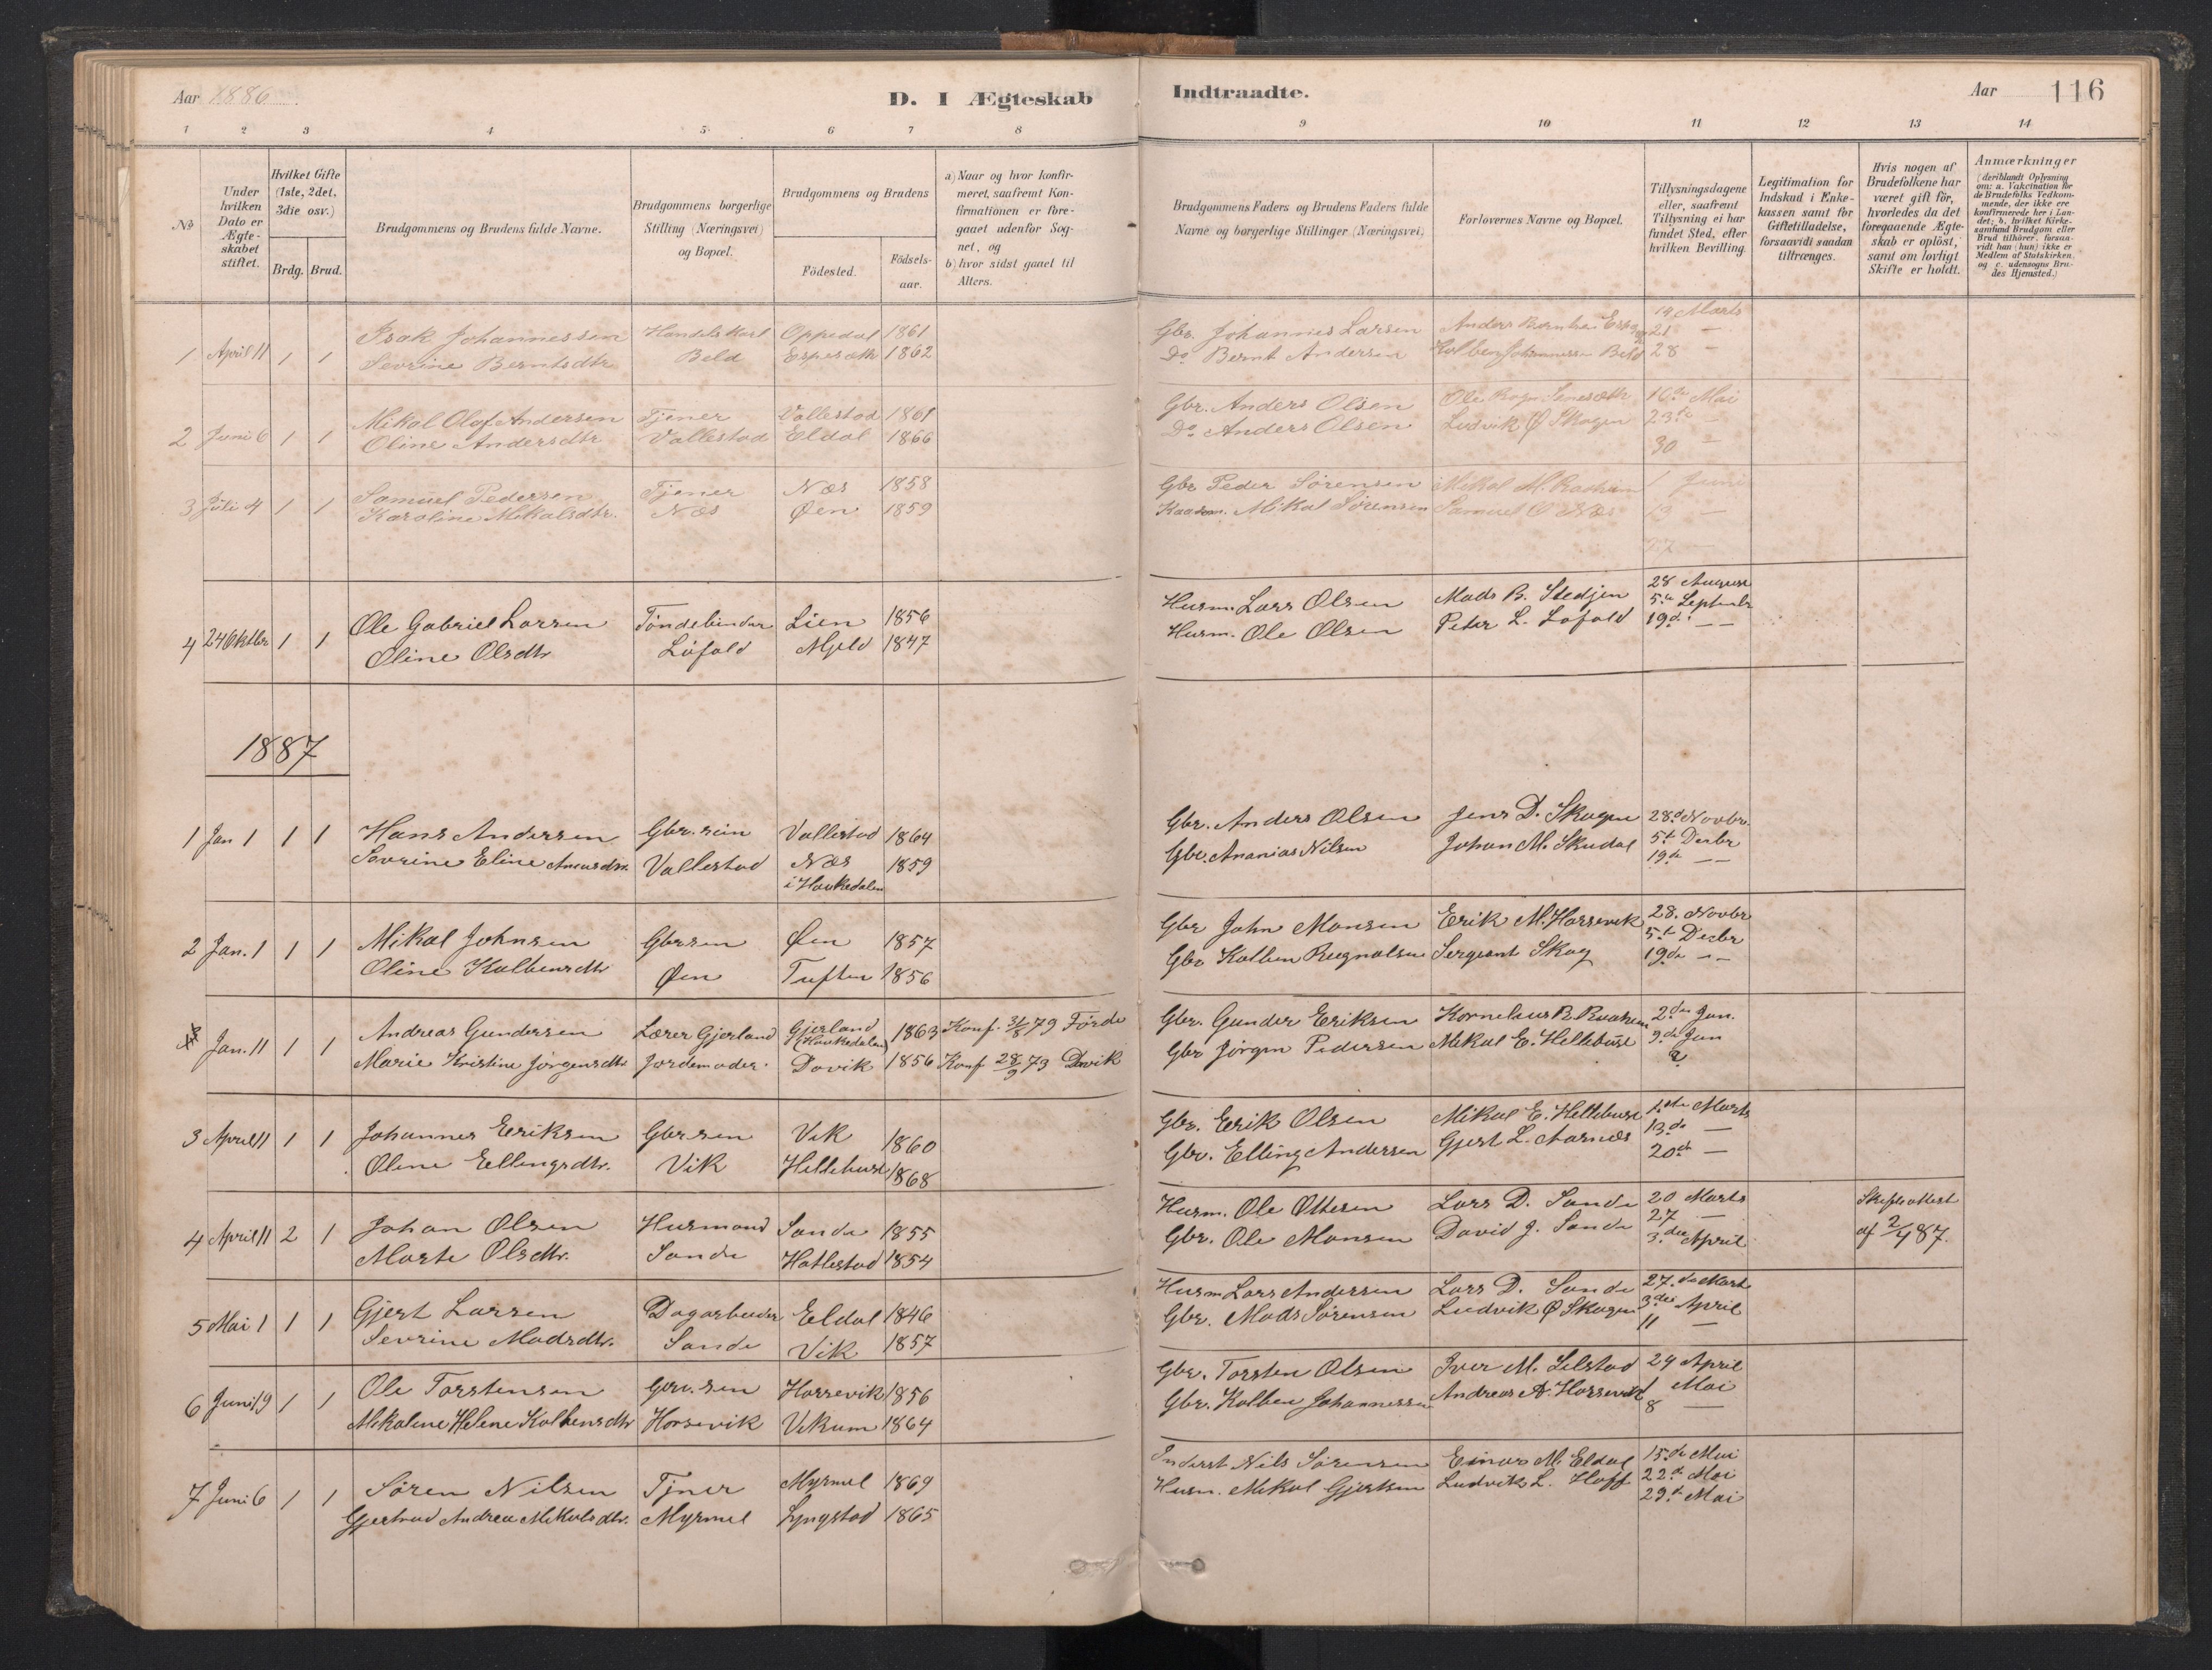 Aar 1886
D. I Ægteskab
Indtraadte.
Aar 116
1 2 3 4 5 6 7 8 9 10 11 12 13 14
No
Under hvilken Dato er Ægteskabet stiftet.
Hvilket Gifte (1ste, 2det, 3die osv.)
Brdg. Brud.
Brudgommens og Brudens fulde Navne.
Brudgommens borgerlige Stilling (Næringsvei) og Bopæl.
Brudgommens og Brudens
Födested.
Födsels-aar.
a) Naar og hvor konfirmeret, saafremt Konfirmationen er foregaaet udenfor Sognet, og
b) hvor sidst gaaet til Alters.
Brudgommens Faders og Brudens Faders fulde Navne og borgerlige Stillinger (Næringsvei)
Forlovernes Navne og Bopæl.
Tillysningsdagene eller, saafremt Tillysning ei har fundet Sted, efter hvilken Bevilling.
Legitimation for Indskud i Enkekassen samt for Giftetilladelse, forsaavidt saadan tiltrænges.
Hvis nogen af Brudefolkene har været gift för, hvorledes da det foregaaende Ægteskab er oplöst, samt om lovligt Skifte er holdt.
Anmærkninger
(deriblandt Oplysning om: a. Vakcination for de Brudefolks Vedkommende, der ikke ere konfirmerede her i Landet; b. hvilket Kirkesamfund Brudgom eller Brud tilhörer, forsaavidt han (hun) ikke er Medlem af Statskirken, og c. udensogns Brudes Hjemsted.)
1 April 11 1 1 Isak Johannessen Handelskarl Oppedal 1861 Gbr. Johannes Larsen 14 Marts
Sevrine Berntsdtr. Beld Espesæth 1862 Do Bernt Andersen Kolben Johannessen Beld 21 —
28 —
2 Juni 6 1 1 Mikal Olaf Andersen Tjener Vallestad 1861 Gbr. Anders Olsen Ole 16de Mai
Oline Andersdtr. Vallestad Eldal 1866 Do Anders Olsen Ludvik Ø Skagen 23de —
30 —
3 Juli 4 1 1 Samuel Pedersen Tjener Næs 1858 Gbr Peder Sørensen Mikal M. Juni
Karoline Mikalsdtr. Næs Øen 1859 Mikal Sørensen Samuel O Næs 13 —
4 24 Oktbr 1 1 Ole Gabriel Larsen Töndebinder Lien 1856 Husm. Lars Olsen Mads B. Stedjen 28 August
Oline Olsdtr. Löfald Mjeld 1847 Husm. Ole Olsen Peter L. Lofald 5te Septembr
19de — —
1887
1 Jan 1 1 1 Hans Andersen Gbr. sön Vallestad 1864 Gbr. Anders Olsen Jens D. Skagen 28de Novbr.
Sevrine Eline Vallestad Næs i Haukedalen 1859 Gbr. Ananias Nilsen Johan M. Skudal 5te Decbr
19de — —
2 Jan. 1 1 1 Mikal Johnsen Gbrsøn Øen 1857 Gbr John Monsen Erik M. Horsevik 28. Novbr
Oline Kolbensdtr Øen Tuften 1856 Gbr Kolben Regnalsen Sergeant Skog 5te Decbr
19de — —
Jan. 11 1 1 Andreas Gundersen Lærer Gjerland Gjerland (Haukedalen) 1863 Konf. 31/8 79 Förde Gbr. Gunder Eriksen Kornelius R. 2den Jan.
Marie Kristine Jörgensdtr Jordemoder Davik 1856 Konf 28/9 73 Davik Gbr Jörgen Pedersen Mikal E. Hellebust 9de Jan
3 April 11 1 1 Johannes Eriksen Gbr. søn Vik 1860 Gbr. Erik Olsen Mikal E. Hellebust Marts
Oline Ellingsdtr. Vik Hellebust 1868 Gbr. Elling Andersen Gjert L. Aarnæs 13de —
20de —
4 April 11 2 1 Johan Olsen Husmand Sande 1855 Husm. Ole Ottesen Lars D. Sande 20 Marts Skifteattest
Marte Olsdtr. Sande Hatlestad 1854 Gbr. Ole Monsen David J. Sande 27 — af 2/4 87.
3die April
5 Mai 1 1 1 Gjert Larsen Dagarbeider Eldal 1846 Husm Lars Andersen Lars D. Sande 27.de Marts
Sevrine Madsdtr. Sande Vik 1857 Gbr. Mads Sørensen Ludvik Ø Skagen 3die April
11 —
6 Juni 19 1 1 Ole Torstensen Gbr. søn Horsevik 1856 Gbr. Torsten Olsen Iver M. Lilstad 24 April
Mikaline Helene Kolbensdtr Horsevik Vikum 1864 Gbr. Kolben Johannessen Andreas A. Horsevik 1 Mai
8 —
7 Juni 6 1 1 Søren Nilsen Tjner Myrmel 1869 Inderst Nils Sørensen Einar M. Eldal 15de Mai
Gjertrud Andrea Mikalsdtr. Myrmel Lyngstad 1865 Husm. Mikal Gjertsen Ludvik L. Hoff 22de Mai
29de Mai